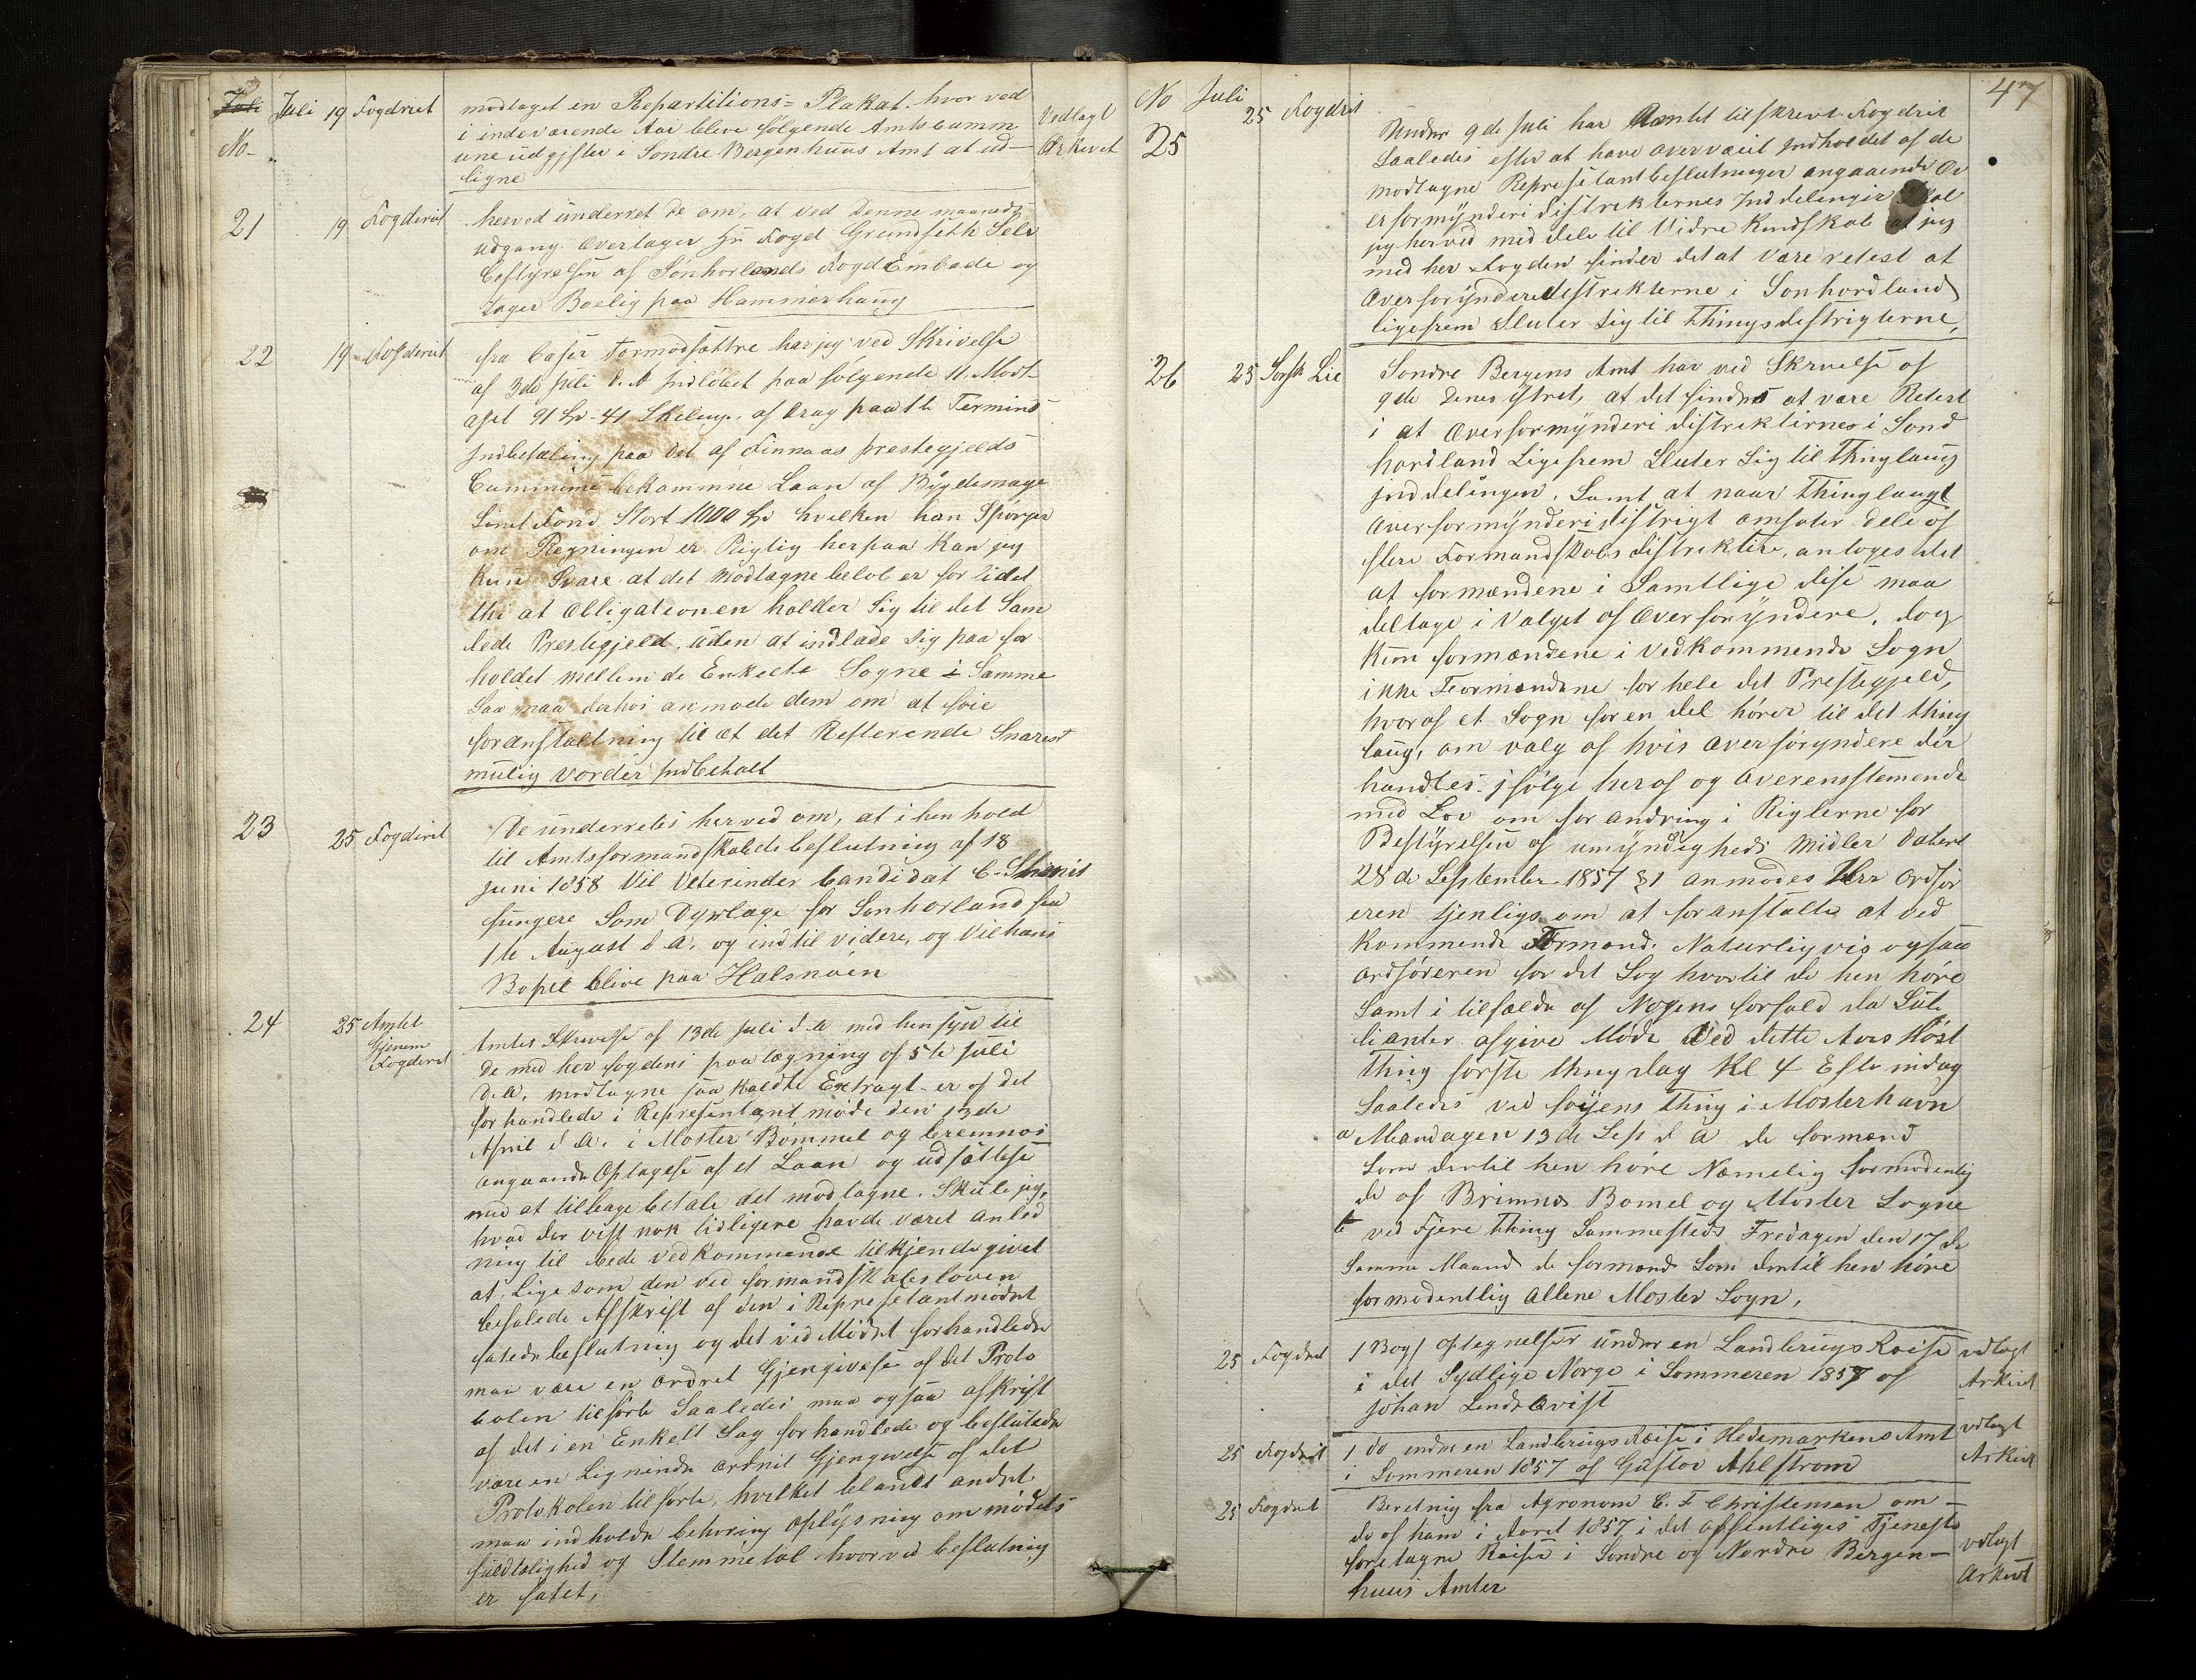 Juli Juli 19 Fogdriet modtaget en Repartitions- Plakat. hvor ved Vedlagt
No i indeværende Aar blive følgende Amts Comm Arkivet
une udgifter i Søndre Bergenhuus Amt at ud-
ligne
21 19 Fogderiet herved underret de om, at ved denne maaneds
udgang. overtager Hr Fogd Grundseth Selv
Bestyrelsen af Sønhorlands Fogd Embede og
tager Boelig paa Hammerhaug
22 19 Fogderiet fra Casser Tormodsættre har jeg ved Skrivelse
af 3de juli d. A indløbet paa følgende 11. Modt
aget 91 Sp - 41 Skeling. af drag paa 1te Termins
Indbetaling paa det af Finnaas prestegjelds
Commune bekomne Laan af Bygdemage
Sinet Fond Stort 1000 Sp hvilken han Spørger
om Regningen er Rigtig herpaa kan jeg
kun Svare at det modtagne beløb er for lidet
thi at Obligationen holder sig til det Sam
lede Prestegjeld, uden at indlade sig paa for
holdet mellem de Enkelte Sogne i Samme
Saa maa derhos anmode dem om at føie
foranstaltning til at det Resterende Snarest
mulig vorder indbetalt
23 25 Fogderiet De underretes herved om, at i henhold
til Amtsformandskabets beslutning af 18
juni 1858 Vil Veterinder Candidat C.
fungere Som Dyrlæge for Sønhorland fra
1te August d A. og indtil videre, og Vil hans
Bopel blive paa Halsnøen
24 25 Amtet Amtes Skrivelse af 13de juli d A med hensyn til
Gjenem de med her fogdens paa tægning af 5te juli
Fogderiet d. A. modtagne saa kaldte Extragt er af det
forhandlede i Representant møde den 13de
April d A. i Moster Bømmel og bremnæs
angaaende Optagelse af et Laan og udsættelse
med at tilbage betale det modtagne. Skule jeg,
hvad der vist nok tidligere havde været anled
ning til bede vedkommende tilkjende givet
at Lige som den ved formandskabsloven
befalede Afskrift af den i Represetantmødet
fatede beslutning og det ved Mødet forhandlede
maa være en ordret Gjengivese af det Proto
colen tilførte Saaledes maa ogsaa afskrift
af det i en Enkelt Sag forhandlede og beslutede
være en Lignende ordret Gjengivelse af det
Protokolen tilførte, hvilket blandt andet
maa indholde behøring oplysning om mødets
fuldtalighed og Stemmetal hvorved beslutning
er fatet,
47
No Juli
25 25 Fogdrit Under 9de juli har Amtet tilskrevet Fogdrit
Saaledes efter at have overvæiet indholdet af de
modtagne Represetantbeslutninger angaaende Ov
erformynderi distrikternes Inddelinger skal
jeg herved med dele til Vidre kundskab at jeg
med her Fogden finder det at være retest at
Overforynderidistrikterne i Sonhordland
ligefrem Sluter sig til Thingsdistrigterne,
26 25 Sorsk Lie Søndre Bergens Amt har ved Skrivelse af
9de denes ytret, at det findes at være Retest
i at Overformynderi distrikternes i Sond
hordland Ligefrem Sluter sig til Thinglaug
inddelingen. Samt at naar Thinglaugt
overformynderi distrigt omfater dele af
flere Formandskabs distrikter, antoges det
at formændene i Samtlige disse maa
deltage i valget af Overforyndere, dog
kun formændene i vedkommende Sogn
ikke Formændene for hele det Prestegjeld,
hvoraf et Sogn for en del hører til det thing
laug, om valg af hvis overforyndere der
handles. ifølge heraf og Overensstemende
med Lov om forandring i Riglerne for
Bestyrelsen af umyndigheds Midler datert
28de September 1857 §1 anmodes Herr Ordfør
eren tjenligs om at foranstalte at ved
kommende Formænd. Naturligvis ogsaa
ordføreren for det Sog hvortil de hen høre
Samt i tilfælde af Nogens forfald da Sub
lianter afgive Møde Ved dette Aars Høst
thing første thing dag Kl 4 Efter midag
Saaledes ved Føyens thing i Mosterhavn
a Mandagen 13de Sept d A de formænd
som dertil hen høre Næmelig formodenlig
de af Brimnes Bømel og Moster Sogne
b ved Fjere Thing Sammesteds Fredagen den 17de
Samme Maaned de formænd Som dertil hen høre
formodentlig allene Moster Sogn.
25 Fogdrit 1 Bog/ optegnelser under en Landbrugs Reise vdlagt
i det Sydlige Norge i Sommeren 1857 af Arkivet
johan Lindeqvist
25 Fogdrit 1 do under en Landbrugs Reise i Hedemarkens Amt vdlagt
i Sommeren 1857 af Gustov Ahlstrom Arkivt
25 Fogdrit Beretnig fra Agronom C. F Christensen om
de af ham i Aaret 1857 i det offentliges Tjeneste vdlagt
foretagne Reiser i Søndre og Nordre Bergen- Arkivt
huus Amter